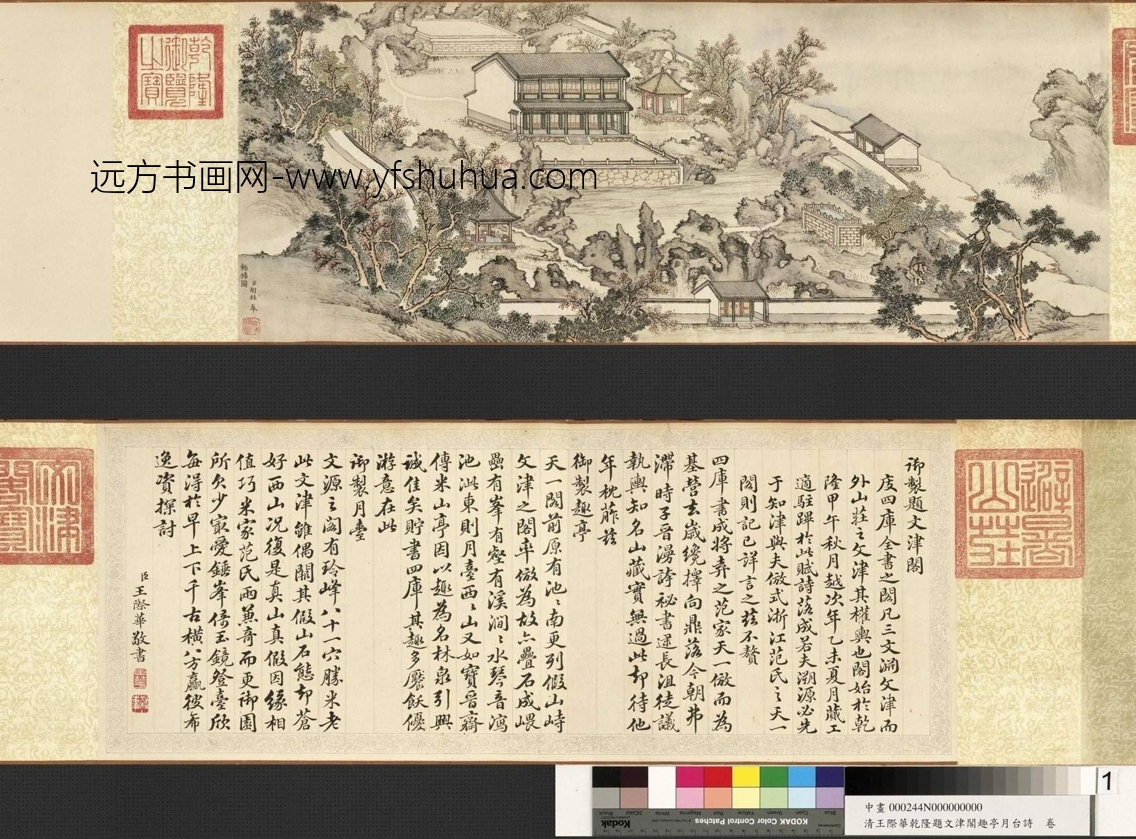 乾隆御覽之寶
远方书画网-www.yfshuhua.com
臣胡桂奉
避暑山莊
御製題文津閣
庋四庫全書之閣凡三文淵文津而
外山莊之文津其權輿也閣始於乾
隆甲午秋月越次年乙未夏月蕆工
適駐蹕於此賦詩落成若夫溯源必先
于知津與夫倣式浙江范氏之天一
閣則記已詳言之茲不贅
四庫書成將弆之范家天一倣而為
基營玄歲纔擇向鼎落今朝弗
滯時子晉漫誇祕書逕長沮徒議
執輿知名山藏實無過此却待他
年枕葄茲
御製趣亭
天一閣前原有池〻南更列假山峙
文津之閣率倣為故亦疊石成嵔
壘有峯有壑有溪澗〻水琴音瀉
池沚東則月臺西〻山又如寶晉齋
傳米山亭因以趣為名林泉引興
誠佳矣貯書四庫其趣多饜飫優
游意在此
御製月臺
文源之閣有玲峰八十一穴勝米老
此文津雖偶闕其假山石態却蒼
好西山況復是真山真假因緣相
值巧米家范氏兩兼奇而更御園
所欠少最愛錘峯倚玉鏡登臺欣
每得於早上下千古橫八方贏彼布
逸資探討
臣王際華敬書
文津閣寶
KODAK Color Control Patches
Kodak
1
中畫 000244N000000000
清王際華乾隆題文津閣趣亭月台詩 卷